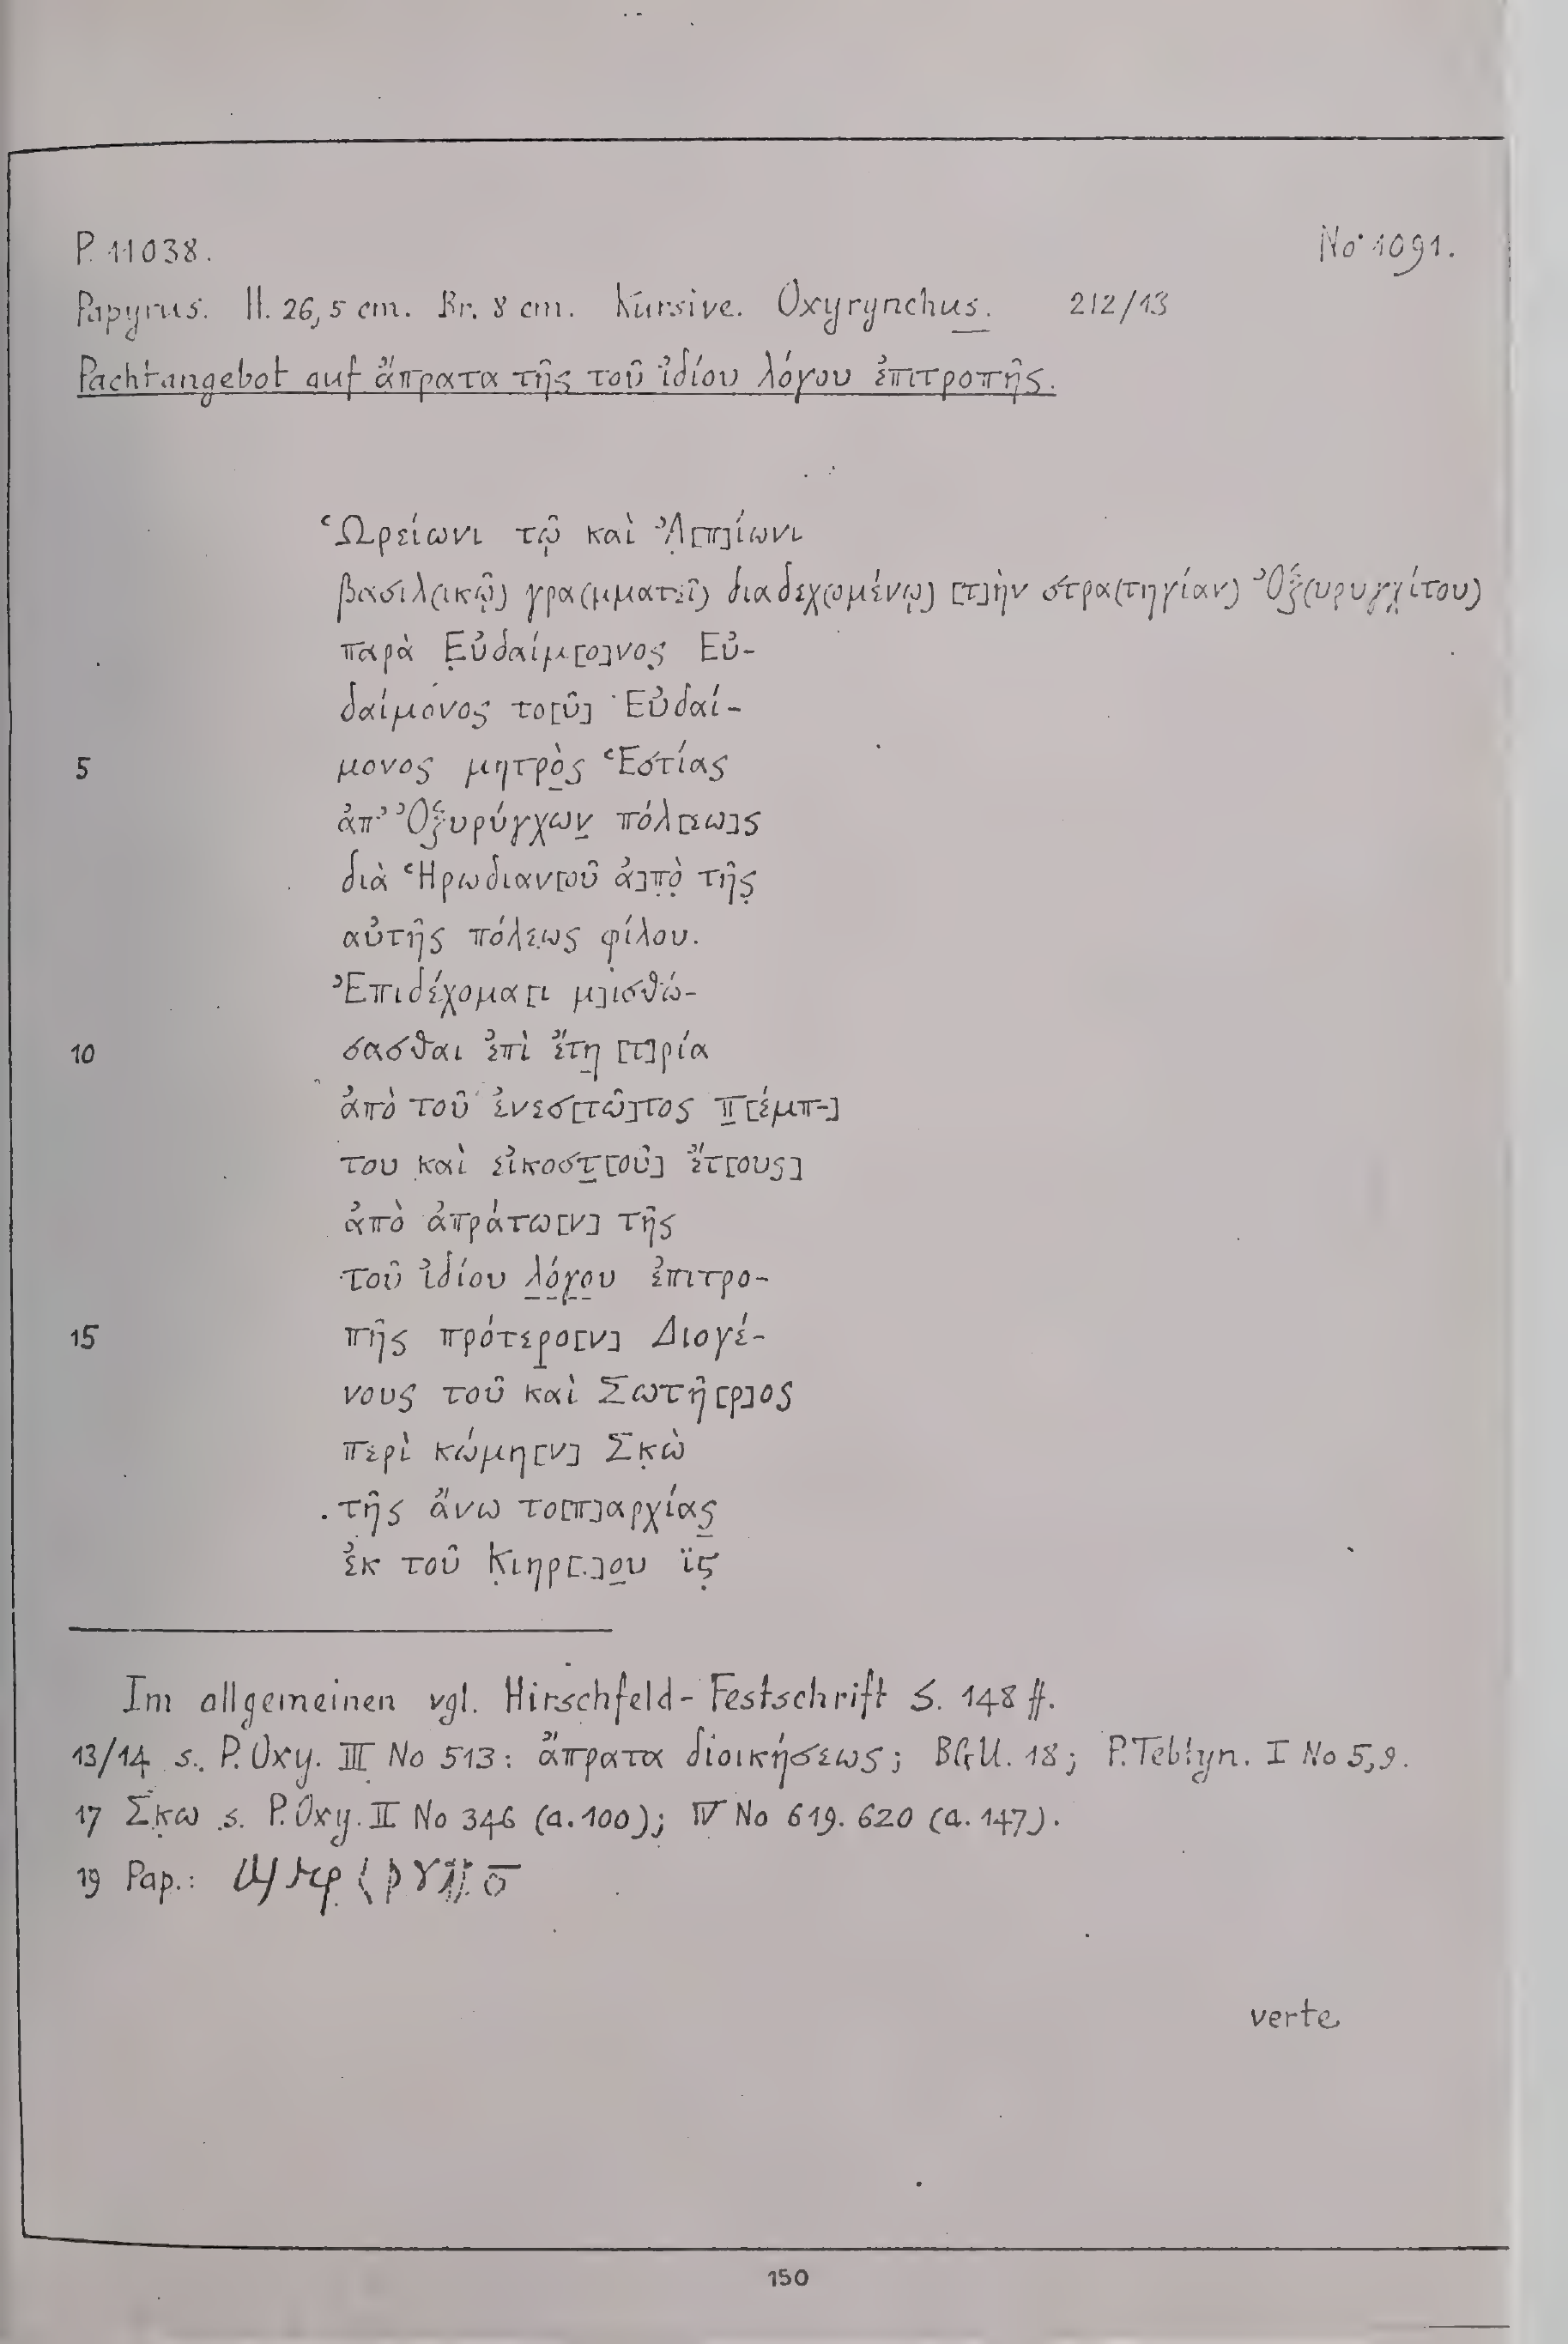 P. 11038. No 1091.
Papyrus. H. 26,5 cm. Br. 8 cm. Kursive. Oxyrynchus. 212/13
Pachtangebot auf ἄπρατα τῆς τοῦ ἰδίου λόγου ἐπιτροπῆς.
Ὡρείωνι τῷ καὶ Ἀ̣[π]ίωνι
βασιλ(ικῷ) γρα(μματεῖ) διαδεχ(ομένῳ) [τ]ὴν στρα(τηγίαν) Ὀξ(υρυγχίτου)
παρὰ Ε̣ὐδαίμ[ο]νος̣ Εὐ-
δαίμονος το[ῦ] Εὐδαί-
5 μονος μητρὸ̣ς Ἑστίας
ἀπ’ Ὀξυρύγχων̣ πόλ[εω]ς
διὰ Ἡρωδιαν[οῦ ἀ]π̣ὸ̣ τῆς̣
αὐτῆς πόλε̣ως φίλου.
Ἐπιδέχομα[ι μ]ισθώ-
10 σασθαι ἐπὶ ἔτη̣ [τ]ρία
ἀπὸ τοῦ ἐνεσ[τῶ]τος π̣[έμπ-]
του καὶ εἰκοστ̣[οῦ] ἔτ[ους]
ἀπὸ ἀπράτω[ν] τῆς
τοῦ ἰδίου λ̣ό̣γ̣ο̣υ ἐπιτρο-
15 πῆς πρότερ̣ο[ν] Διογέ-
νους τοῦ καὶ Σωτῆ[ρ]ος
περὶ κώμη[ν] Σκ̣ὼ
τῆς ἄνω το[π]αρχίας̣
ἐκ τοῦ Κ̣ιηρ[.]ο̣υ ϊς̣
Im allgemeinen vgl. Hirschfeld-Festschrift S. 148 ff.
13/14 s. P. Oxy. III No 513: ἄπρατα διοικήσεως; BGU. 18; P. Tebtyn. I No 5,9.
17 Σκ̣ω s. P. Oxy. II No 346 (a. 100); IV No 619. 620 (a. 147).
19 Pap.:
verte
150